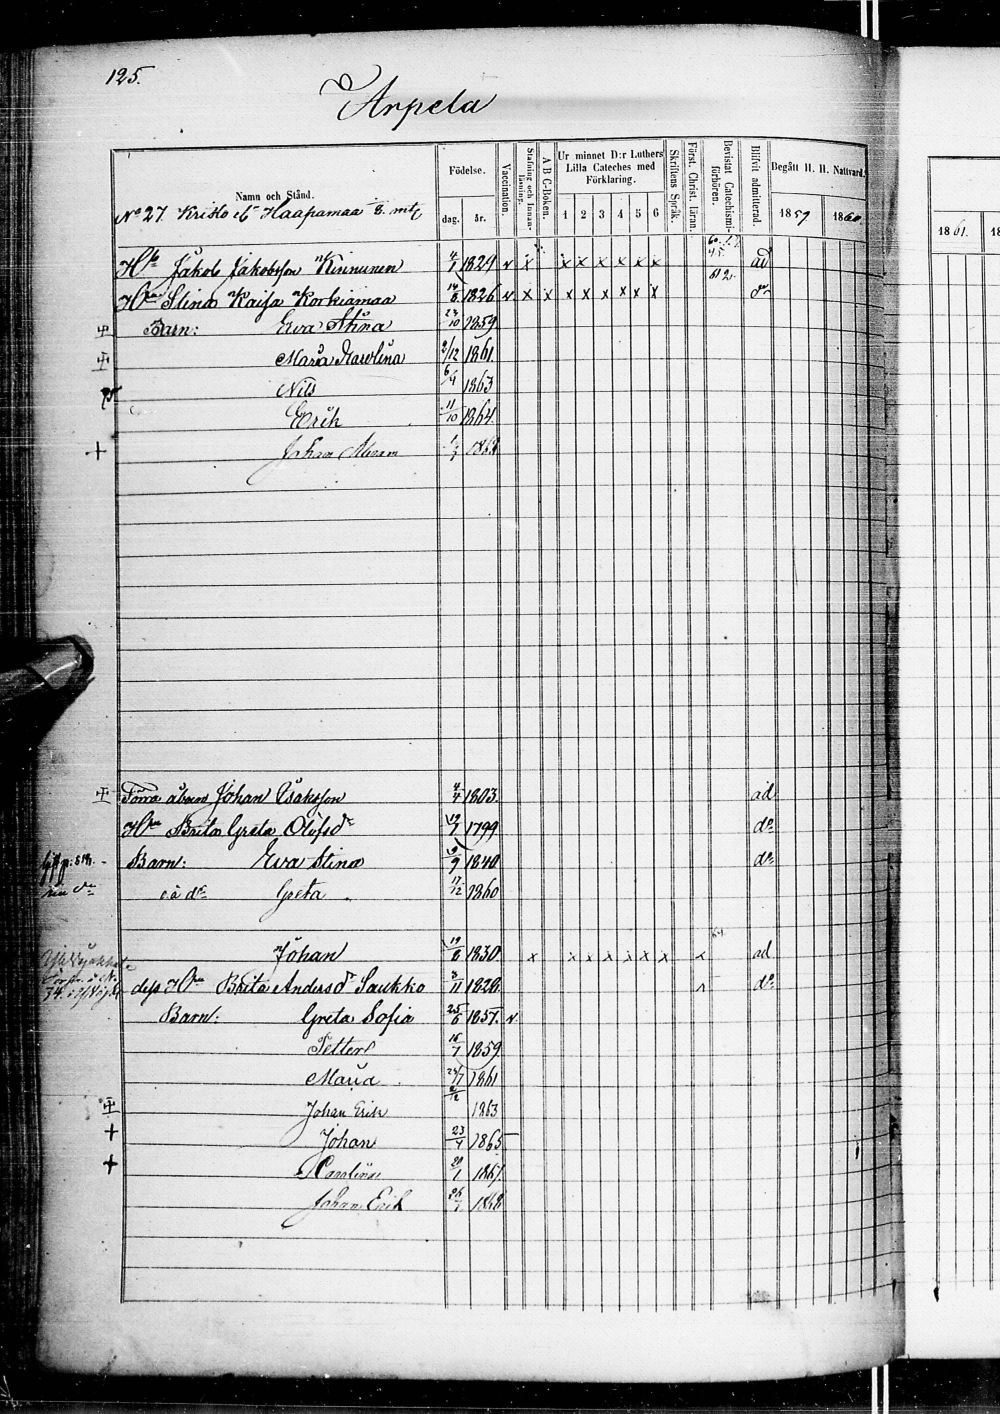 125.
Arpela
Namn och Stånd.
Födelse.
dag. år.
Vaccination.
Stafning och Innanläsning.
A B C-Boken.
Ur minnet D:r Luthers Lilla Cateches med Förklaring.
1 2 3 4 5 6
Skriftens Språk.
Först. Christ. läran.
Bevistat Catechismiförhören.
Blifvit admitterad.
Begått H. H. Nattvard.
1859 1860
1861
No 27. Kristo Haapamaa mtl
Jakob Jakobsson Kinnunen 4/1 1829 v x x x x x x x ad
Stina Kaisa Korkiamaa 14/8 1826 v x x x x x x x x do
Barn: Eva Stina 23/10 1859
Maria Karolina 2/12 1861
Nils 6/4 1863
Erik 11/10 1864
Johan
Förra åboen Johan Isaksson 4/4 1803 ad
Hu Brita Greta Olofsdr 19/7 1799 do
Barn: Eva Stina 9/9 1840 do
Greta 17/12 1860
Johan 19/8 1830 x x x x x x x ad
dess Hu Brita Andersdr Saukko 3/11 1828 do
Barn: Greta Sofia 25/6 1857. v
Petter 15/7 1859
Maria 23/7 1861
Johan Erik 1863
Johan 23/4 1865
Carolina 20/1 1867
Johan Erik 1868